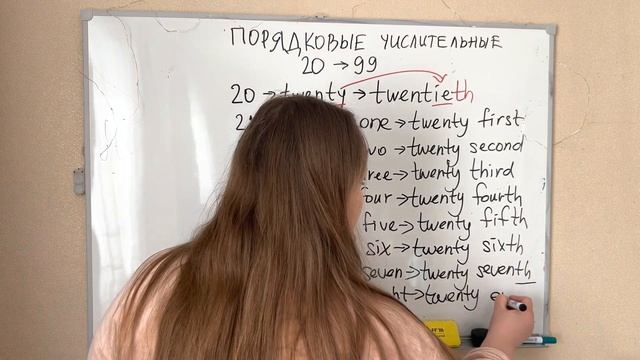 ПОРЯДКОВЫЕ ЧИСЛИТЕЛЬНЫЕ
20 → 99
20 → twenty → twentieth
one → twenty first
→ twenty second
→ twenty third
four → twenty fourth
five → twenty fifth
six → twenty sixth
seven → twenty seventh
→ twenty